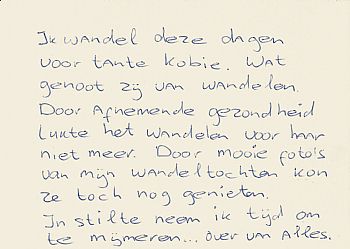 Ik wandel deze dagen
voor tante Kobie. Wat
genoot zij van wandelen.
Door Afnemende gezondheid
lukte het wandelen voor haar
niet meer. Door mooie foto's
van mijn wandeltochten kon
ze toch nog genieten.
In stilte neem ik tijd om
te mijmeren... over van Alles.